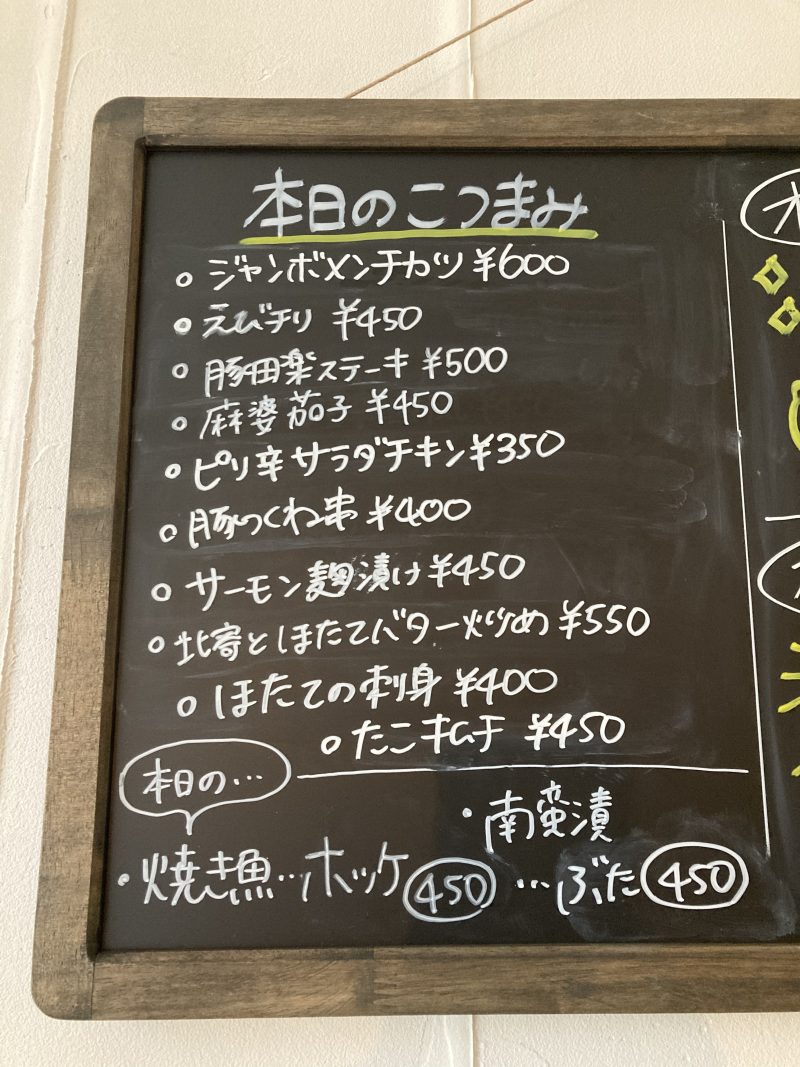 本日のこつまみ
ジャンボメンチカツ ¥600
えびチリ ¥450
豚田楽ステーキ ¥500
麻婆茄子 ¥450
ピリ辛サラダチキン ¥350
豚つくね串 ¥400
サーモン麹漬け ¥450
北寄とほたてバター炒め ¥550
ほたての刺身 ¥400
たこキムチ ¥450
本日の…
・焼き魚…ホッケ 450
・南蛮漬
…ぶた 450